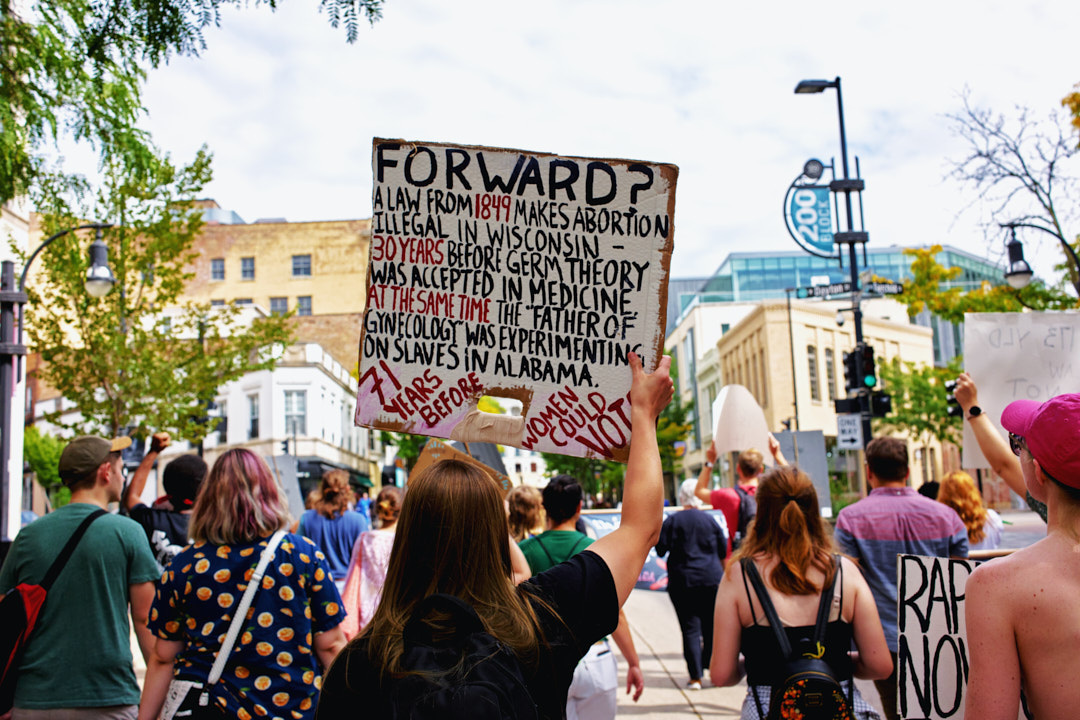 FORWARD?
A LAW FROM 1849 MAKES ABORTION
ILLEGAL IN WISCONSIN –
30 YEARS BEFORE GERM THEORY
WAS ACCEPTED IN MEDICINE.
AT THE SAME TIME THE "FATHER OF
GYNECOLOGY" WAS EXPERIMENTING
ON SLAVES IN ALABAMA.
71
YEARS
BEFORE
WOMEN
COULD
VOTE
200
BLOCK
Dayton
ONE
WAY
NOT